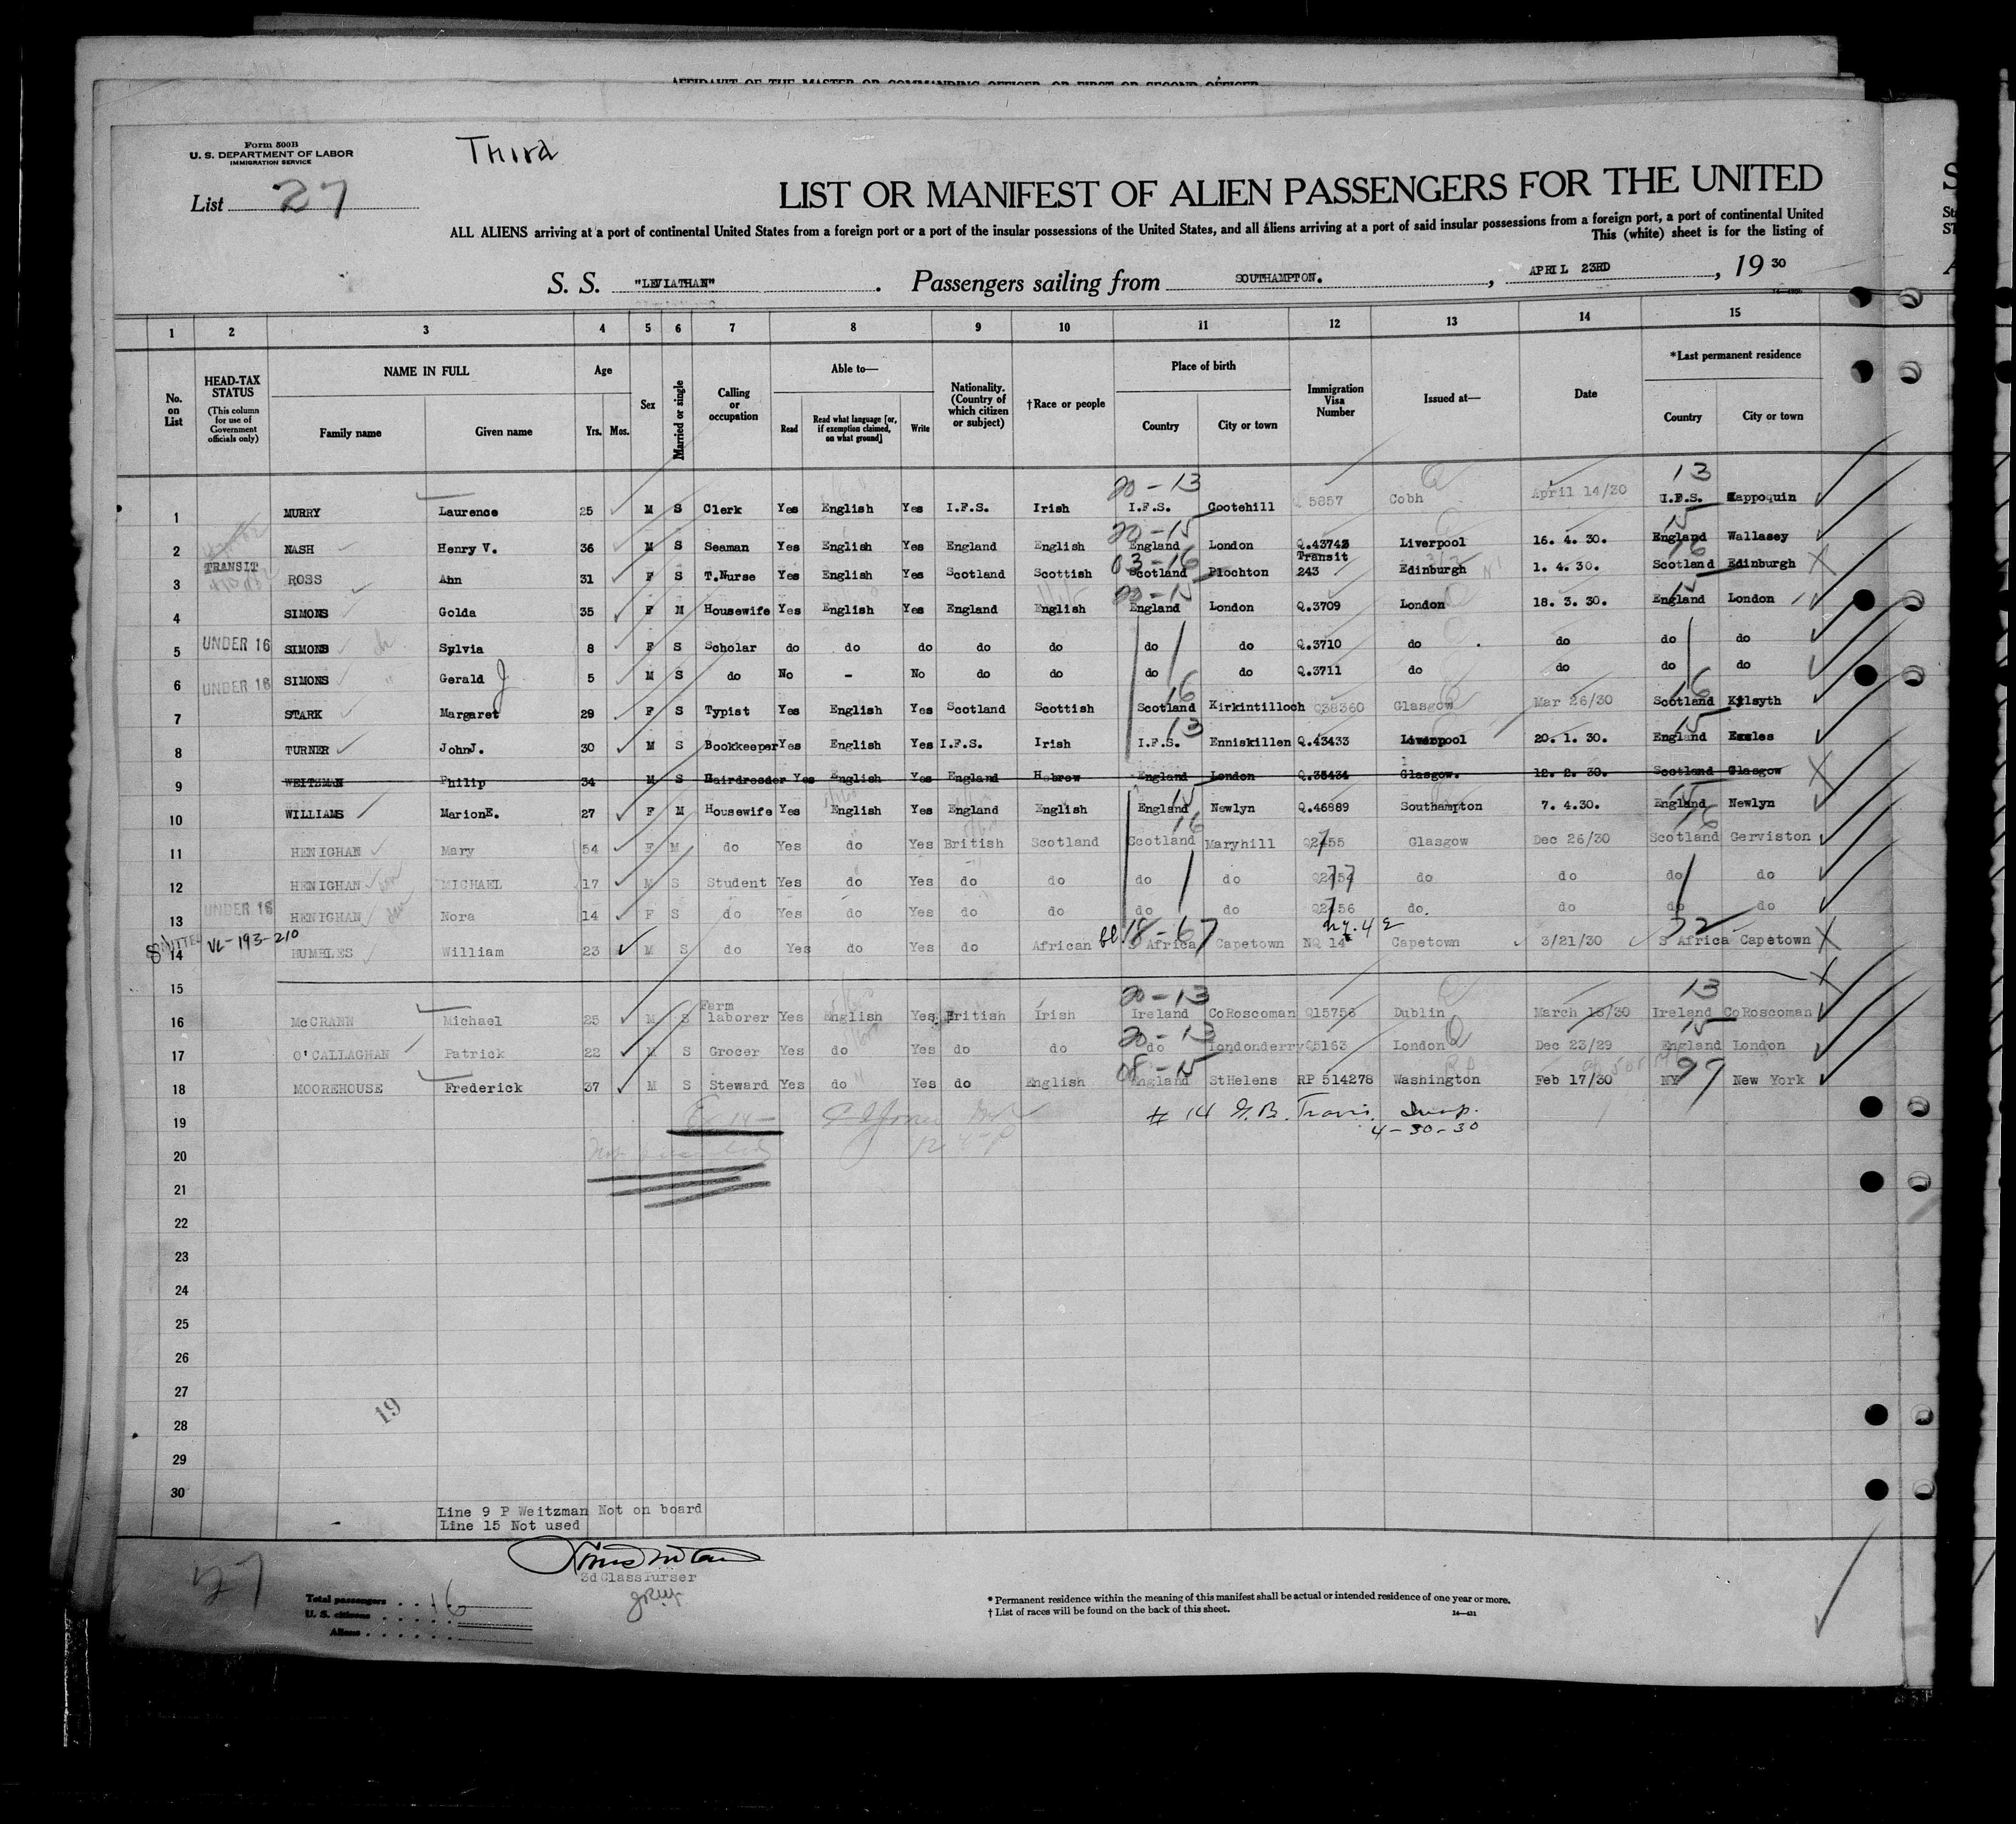 AFFIDAVIT OF THE MASTER OR COMMANDING OFFICER, OR FIRST OR SECOND OFFICER
Form 500B
U. S. DEPARTMENT OF LABOR
IMMIGRATION SERVICE
Third
List 27
LIST OR MANIFEST OF ALIEN PASSENGERS FOR THE UNITED
ALL ALIENS arriving at a port of continental United States from a foreign port or a port of the insular possessions of the United States, and all aliens arriving at a port of said insular possessions from a foreign port, a port of continental United
This (white) sheet is for the listing of
S. S. "LEVIATHAN" . Passengers sailing from SOUTHAMPTON. , APRIL 23RD , 19 30
1 2 3 4 5 6 7 8 9 10 11 12 13 14 15
No. on List
HEAD-TAX STATUS
(This column for use of Government officials only)
NAME IN FULL
Family name Given name
Age
Yrs. Mos.
Sex
Married or single
Calling or occupation
Able to—
Read
Read what language [or, if exemption claimed, on what ground]
Write
Nationality. (Country of which citizen or subject)
†Race or people
Place of birth
Country City or town
Immigration Visa Number
Issued at—
Date
*Last permanent residence
Country City or town
20-13 13
1 MURRY Laurence 25 M S Clerk Yes English Yes I.F.S. Irish I.F.S. Cootehill 5857 Cobh April 14/30 I.F.S. Cappoquin
20-15 15
2 NASH Henry V. 36 M S Seaman Yes English Yes England English England London Q.43743 Liverpool 16. 4. 30. England Wallasey
TRANSIT 03-16 Transit 16
3 ROSS Ann 31 F S T.Nurse Yes English Yes Scotland Scottish Scotland Plochton 243 Edinburgh 1. 4. 30. Scotland Edinburgh
20-15 15
4 SIMONS Golda 35 F M Housewife Yes English Yes England English England London Q.3709 London 18. 3. 30. England London
5 UNDER 16 SIMONS Sylvia 8 F S Scholar do do do do do do do Q.3710 do do do do
6 UNDER 16 SIMONS Gerald J 5 M S do No - No do do do do Q.3711 do do do do
16 16
7 STARK Margaret 29 F S Typist Yes English Yes Scotland Scottish Scotland Kirkintilloch Q38360 Glasgow Mar 26/30 Scotland Kilsyth
13 15
8 TURNER JohnJ. 30 M S Bookkeeper Yes English Yes I.F.S. Irish I.F.S. Enniskillen Q.43433 Liverpool 20. 1. 30. England Eccles
9 WEITZMAN Philip 34 M S Hairdresder Yes English Yes England Hebrew England London Q.38434 Glasgow. 12. 2. 30. Scotland Glasgow
15 15
10 WILLIAMS MarionE. 27 F M Housewife Yes English Yes England English England Newlyn Q.46889 Southampton 7. 4.30. England Newlyn
16 16
11 HENIGHAN Mary 54 F M do Yes do Yes British Scotland Scotland Maryhill Q2455 Glasgow Dec 26/30 Scotland Gerviston
12 HENIGHAN son MICHAEL 17 M S Student Yes do Yes do do do do Q2454 do do do do
13 UNDER 16 HENIGHAN dau Nora 14 F S do Yes do Yes do do do do Q2456 do. do do do
VL-193-210 bl. 18-67 32
14 HUMBLES William 23 M S do Yes do Yes do African S Africa Capetown NQ 14 Capetown 3/21/30 S Africa Capetown
15
20-13 13
16 McCRANN Michael 25 M S Farm laborer Yes English Yes British Irish Ireland CoRoscoman Q15756 Dublin March 18/30 Ireland CoRoscoman
20-13 15
17 O'CALLAGHAN Patrick 22 M S Grocer Yes do Yes do do do Londonderry Q5163 London Dec 23/29 England London
08-15 99
18 MOOREHOUSE Frederick 37 M S Steward Yes do Yes do English England StHelens RP 514278 Washington Feb 17/30 NY New York
19 # 14 G. B. Travis Insp.
4-30-30
20
21
22
23
24
25
26
27
28
29
30
19
Line 9 P Weitzman Not on board
Line 15 Not used
3d ClassPurser
27
Total passengers 16
U. S. citizens
Aliens
* Permanent residence within the meaning of this manifest shall be actual or intended residence of one year or more.
† List of races will be found on the back of this sheet.
14—431